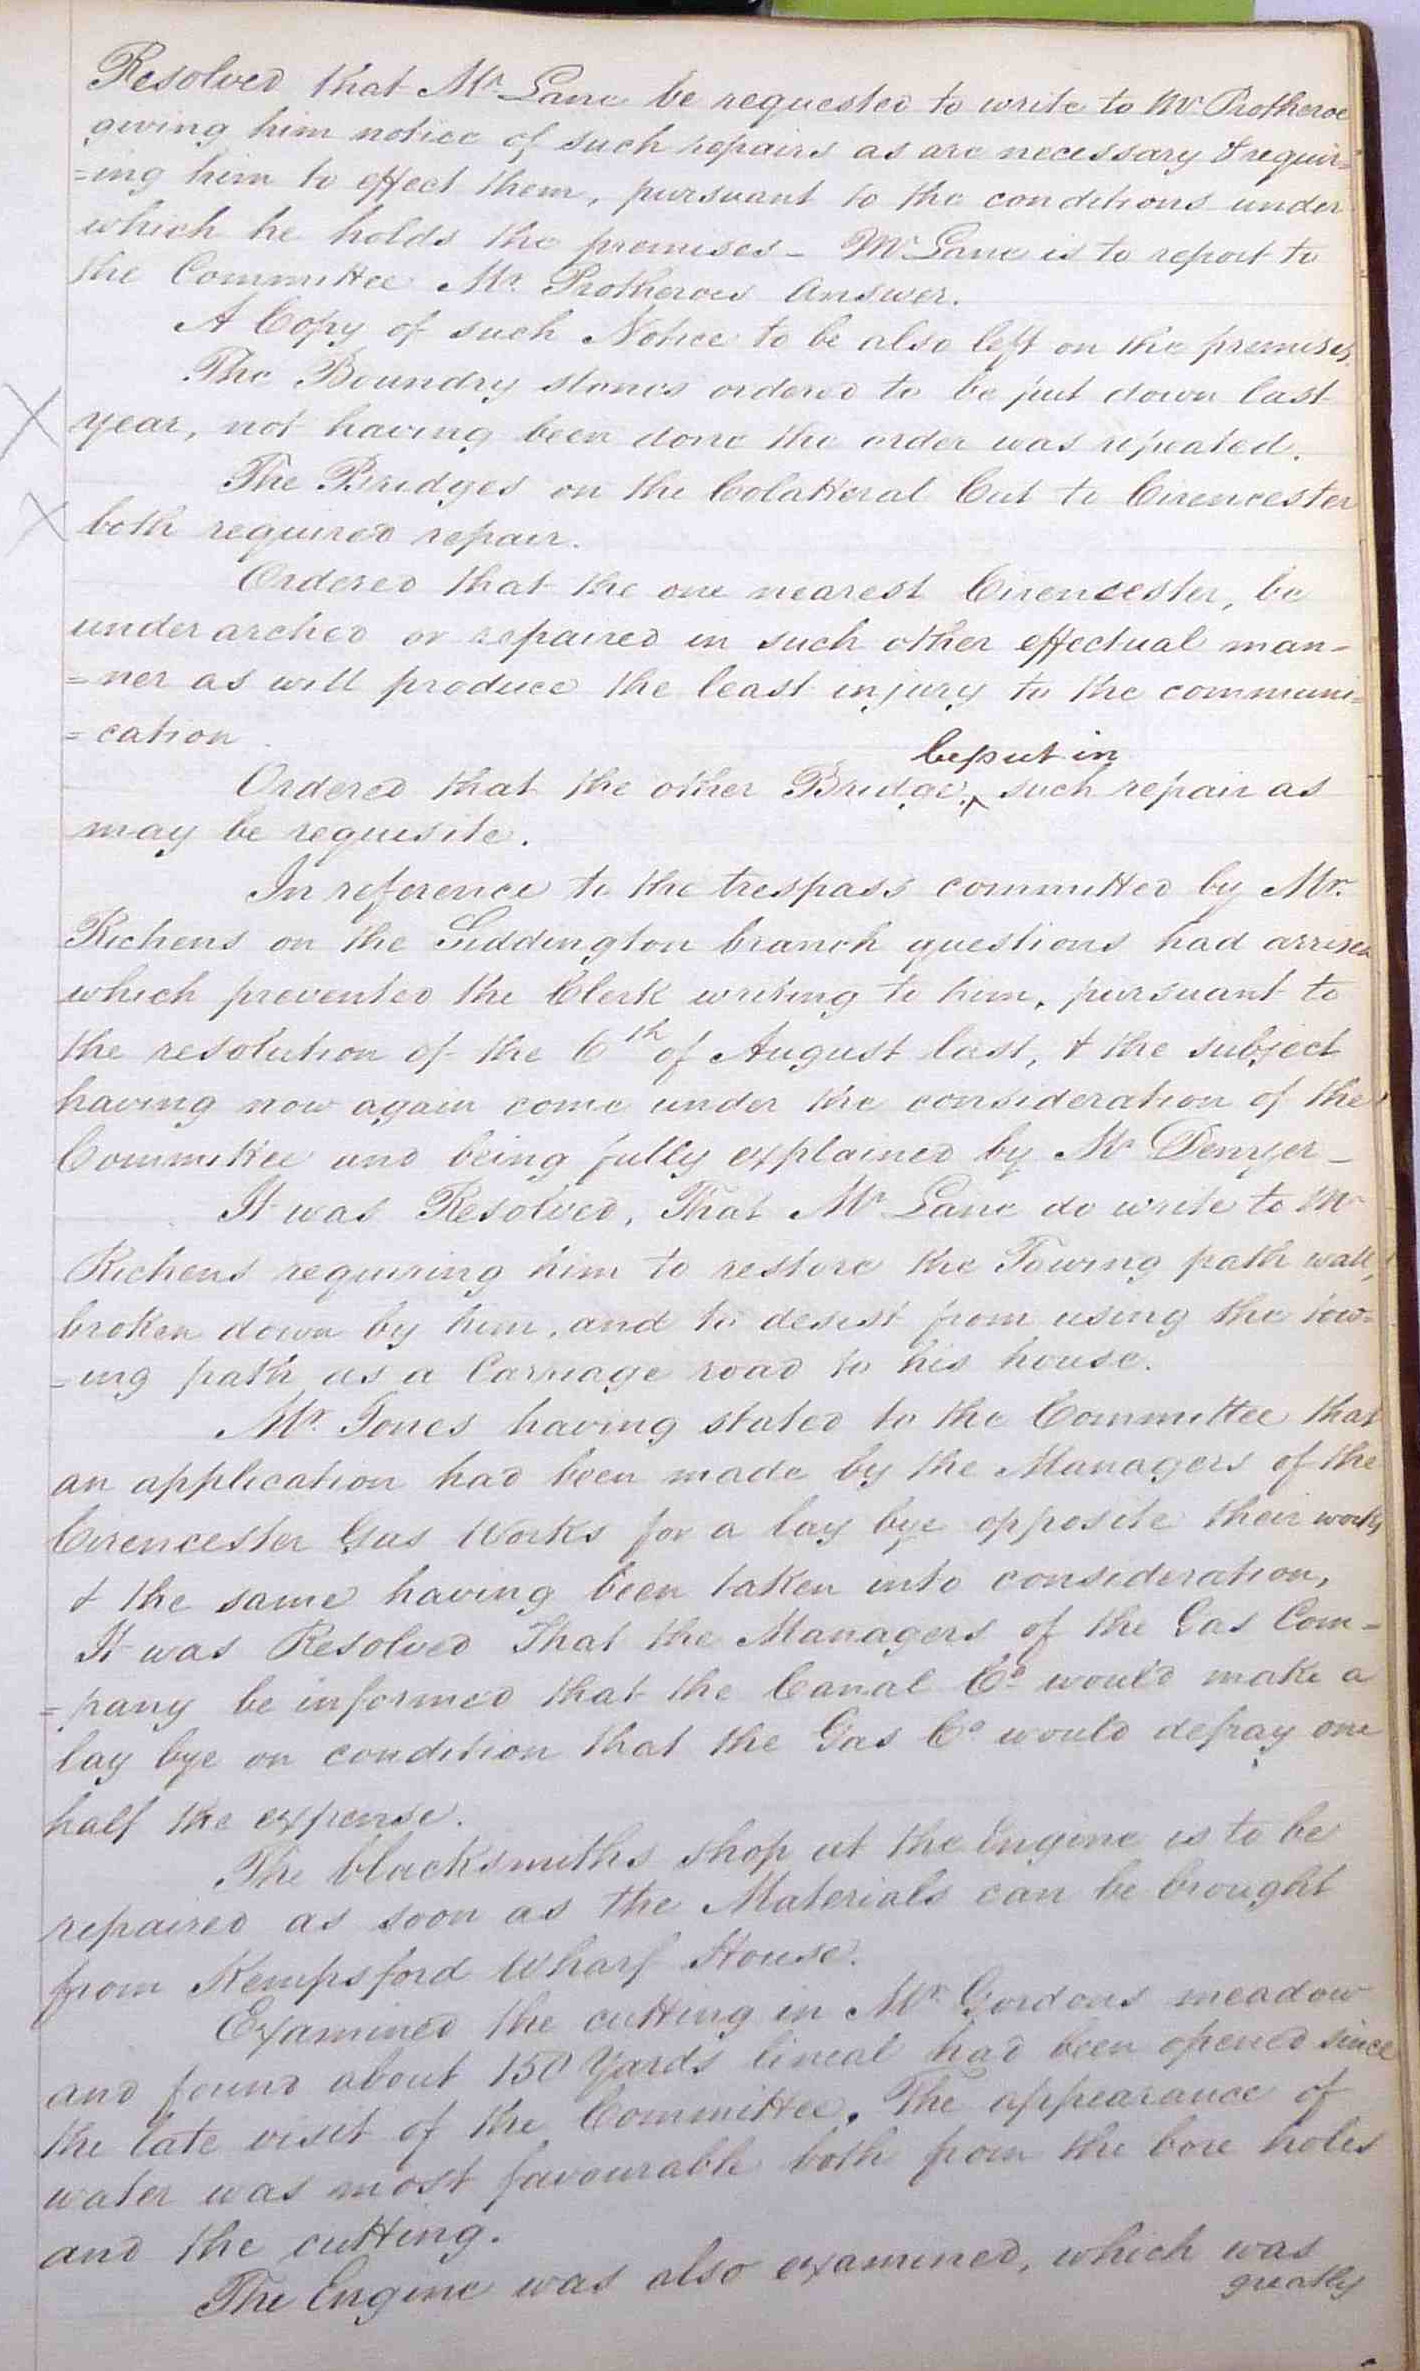 Resolved that Mr Lane be requested to write to Mr Protheroe
giving him notice of such repairs as are necessary & requir=
=ing him to effect them, pursuant to the conditions under
which he holds the premises - Mr Lane is to report to
the Committee Mr. Protheroes Answer.
A Copy of such Notice to be also left on the premises.
The Boundry stones ordered to be put down last
year, not having been done the order was repeated.
The Bridges on the Colatteral Cut to Cirencester
both required repair.
Ordered that the one nearest Cirencester, be
under arched or repaired in such other effectual man=
=ner as will produce the least injury to the communi=
=cation
be put in
Ordered that the other Bridge ^ such repair as
may be requisite.
In reference to the trespass committed by Mr.
Richens on the Siddington branch questions had arrisen
which prevented the Clerk writing to him, pursuant to
the resolution of the 6th of August last, & the subject
having now again come under the consideration of the
Committee and being fully explained by Mr Denyer -
It was Resolved, That Mr Lane do write to Mr
Richens requiring him to restore the Towing path wall,
broken down by him, and to desist from using the tow=
=ing path as a Carriage road to his house.
Mr. Jones having stated to the Committee that
an application had been made by the Managers of the
Cirencester Gas Works for a lay bye opposite their works
& the same having been taken into consideration,
It was Resolved That the Managers of the Gas Com=
=pany be informed that the Canal Co. would make a
lay bye on condition that the Gas Co would defray one
half the expense.
The blacksmiths shop at the Engine is to be
repaired as soon as the Materials can be brought
from Kempsford Wharf House.
Examined the cutting in Mr. Gordons meadow
and found about 150 Yards lineal had been opened since
the late visit of the Committee. The appearance of
water was most favourable both from the bore holes
and the cutting.
The Engine was also examined, which was
greatly